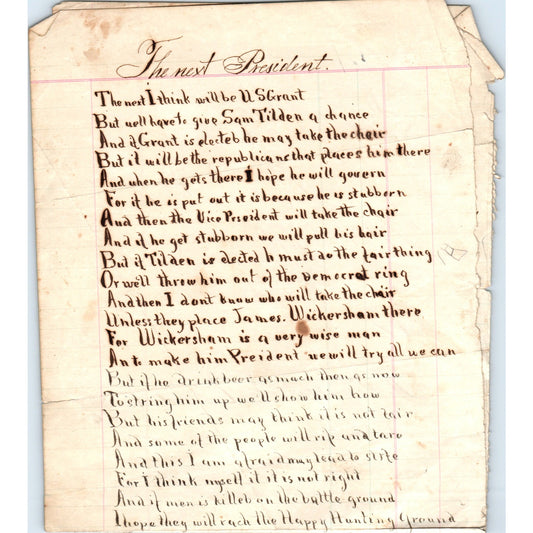 The next President.
The next I think will be U S Grant
But well have to give Sam Tilden a chance
And if Grant is electeb he may take the chair
But it will be the republicans that places him there
And when he gets there I hope he will govern
For if he is put out it is because he is stubborn
And then the Vice President will take the chair
And if he get stubborn we will pull his hair
But if Tilden is elected h must do the fair thing
Or we'll throw him out of the Democrat ring
And then I dont know who will take the chair
Unless they place James. Wickersham there
For Wickersham is a very wise man
And to make him Preident we will try all we can
But if he drink beer as much then as now
To string him up we ll show him how
But his friends may think it is not fair
And some of the people will rip and tare
And this I am afraid may lead to strife
For I think myself it it is not right
And if men is killeb on the battle ground
I hope they will reach the Happy Hunting Ground